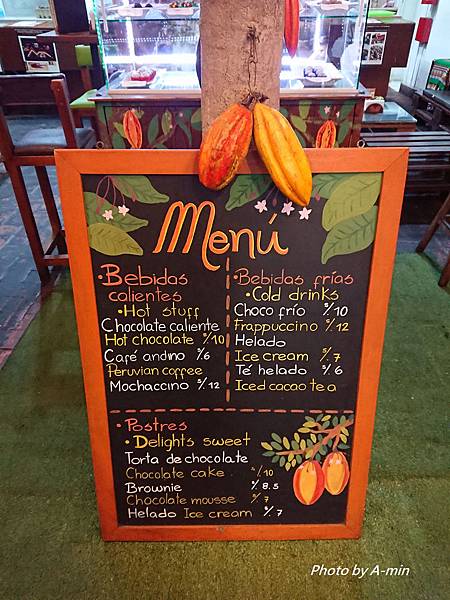 Menú
• Bebidas
calientes
• Hot stuff
Chocolate caliente
Hot chocolate s/10
Café andino s/6
Peruvian coffee
Mochaccino s/.12
• Bebidas frías
• Cold drinks
Choco frío s/10
Frappuccino s/.12
Helado
Ice cream s/.7
Té helado s/6
Iced cacao tea
• Postres
• Delights sweet
Torta de chocolate
Chocolate cake s/10
Brownie s/. 8.5
Chocolate mousse s/7
Helado Ice cream s/.7
Photo by A-min